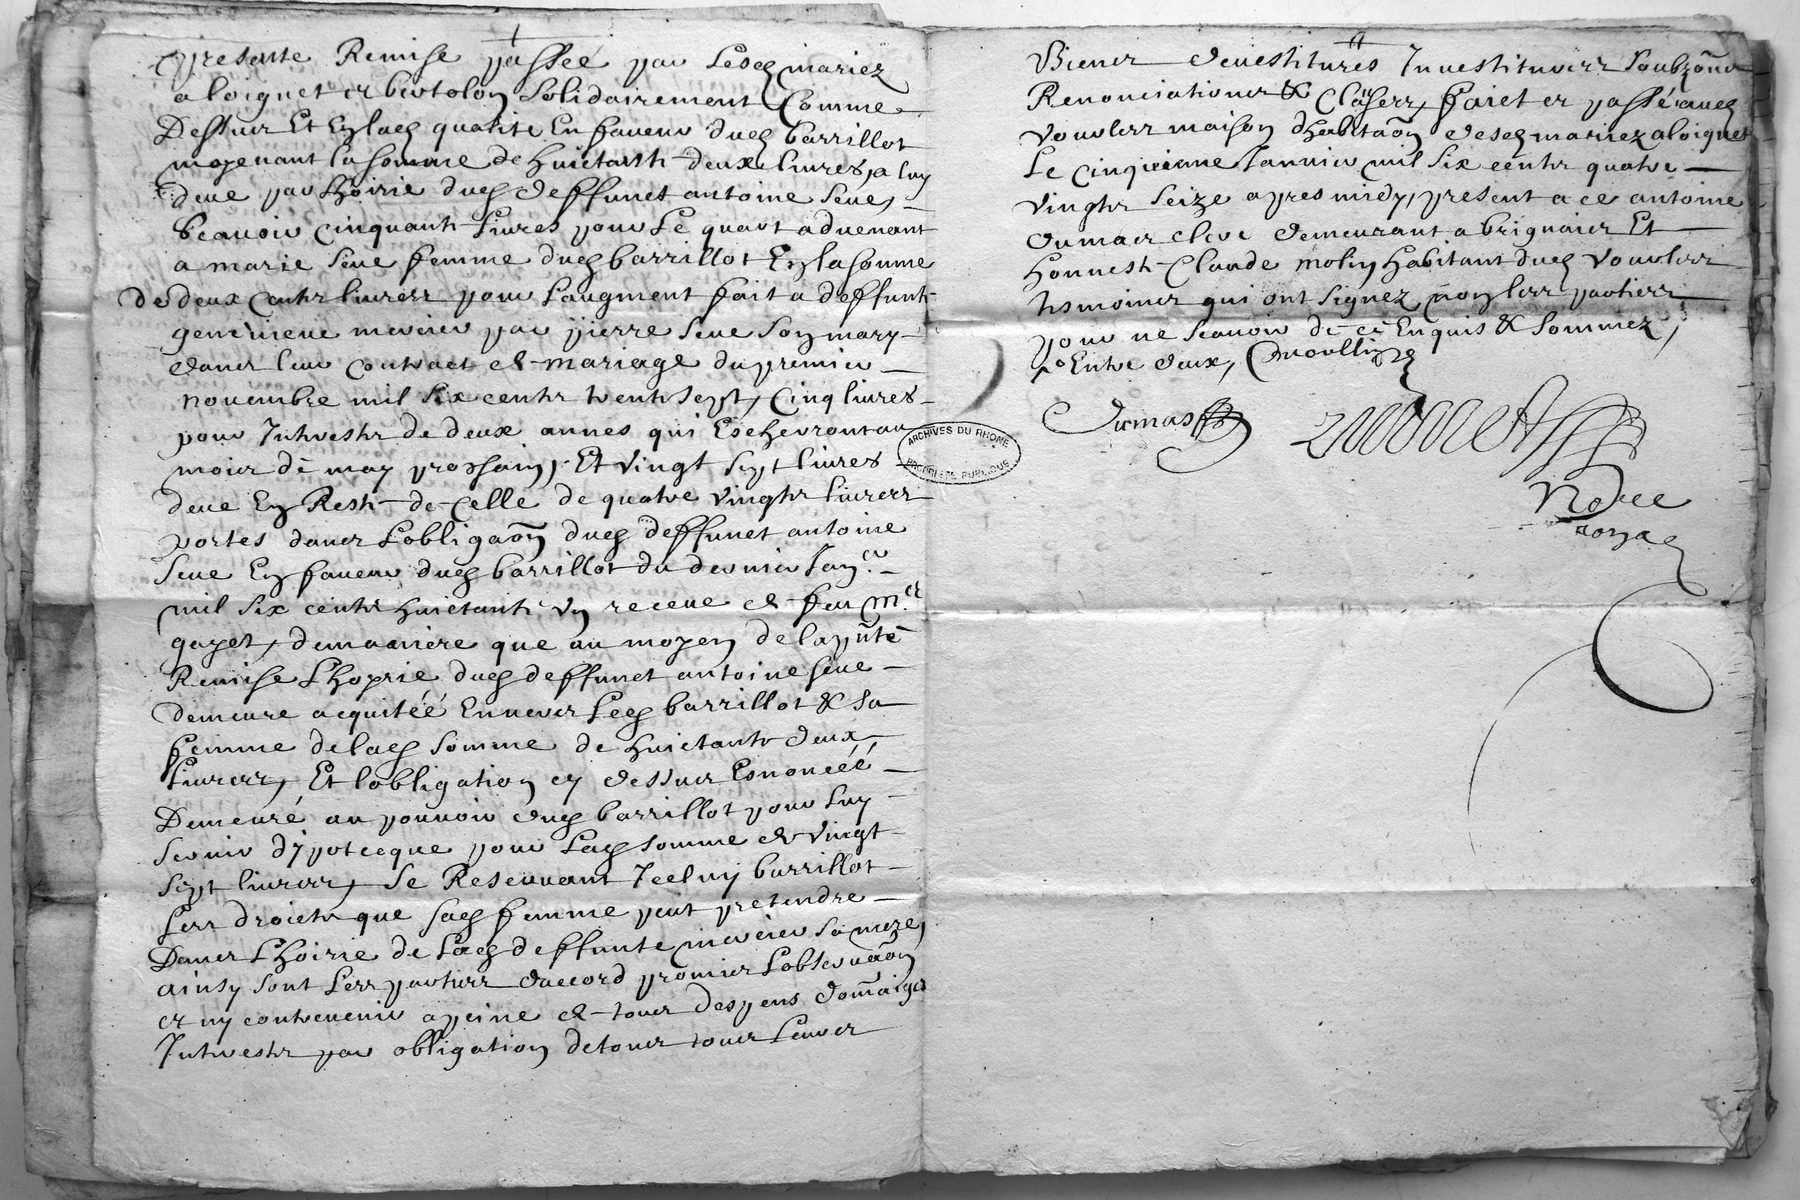 presente Remise passée par lesd mariez
aloignet et bertolon solidairement Comme
Dessus Et En lad qualité En faveur dud barrillot
moyenant la somme de huictante deux livres, a luy
deue par lhoirie dud deffunct antoine seve,
scavoir cinquante livres pour le quart advenant
a marie seve femme dud barrillot En la somme
de deux cents livres pour laugment fait a deffunte
genevieve mercier par pierre seve son mary
dans leur contract de mariage du premier
novembre mil six cents trente sept, Cinq livres
pour Interestz de deux annes qui Escherront au
mois de may prochain, Et vingt sept livres
deue En Reste de Celle de quatre vingts livres
portes dans lobligaon dud deffunct antoine
seve En faveur dud barrillot du dernier Janer
mil six cents huictante un receue de feu Me
gayet, demaniere que au moyen de la pnte
Remise lhoyrie dud deffunct antoine seve
demeure acquitéé Envers led barrillot & sa
femme de lad somme de huictante deux
livres, Et lobligation cy dessus Esnoncéé
Demeuré au pouvoir dud barrillot pour luy
servir dypotecque pour lad somme de vingt
sept livres, se Reservant Icelluy barrillot
les droicts que sad femme peut pretendre
Dans lhoirie de lad deffunte mercier sa mere,
ainsy sont les parties daccord promis lobservaon
et ny contrevenir a peine de tous despens domaiges
Interestz par obligation de tous leurs
Biens devestitures Investitures soubzons
Renonciations & Clauses, faict et passé aud
vourles maison dhabitaon desd mariez aloignet
Le cinquieme Janvier mil six cents quatre
vingts seize apres midy, present a ce antoine
dumas clerc demeurant a brignais Et
honneste Claude molin habitant dud vourles
tesmoins qui ont signez non les parties
pour ne scavoir de ce Enquis & sommez,
Entre deux, Cmollin
Dumas
Nore
Royal
ARCHIVES DU RHONE
PROPRIETE PUBLIQUE